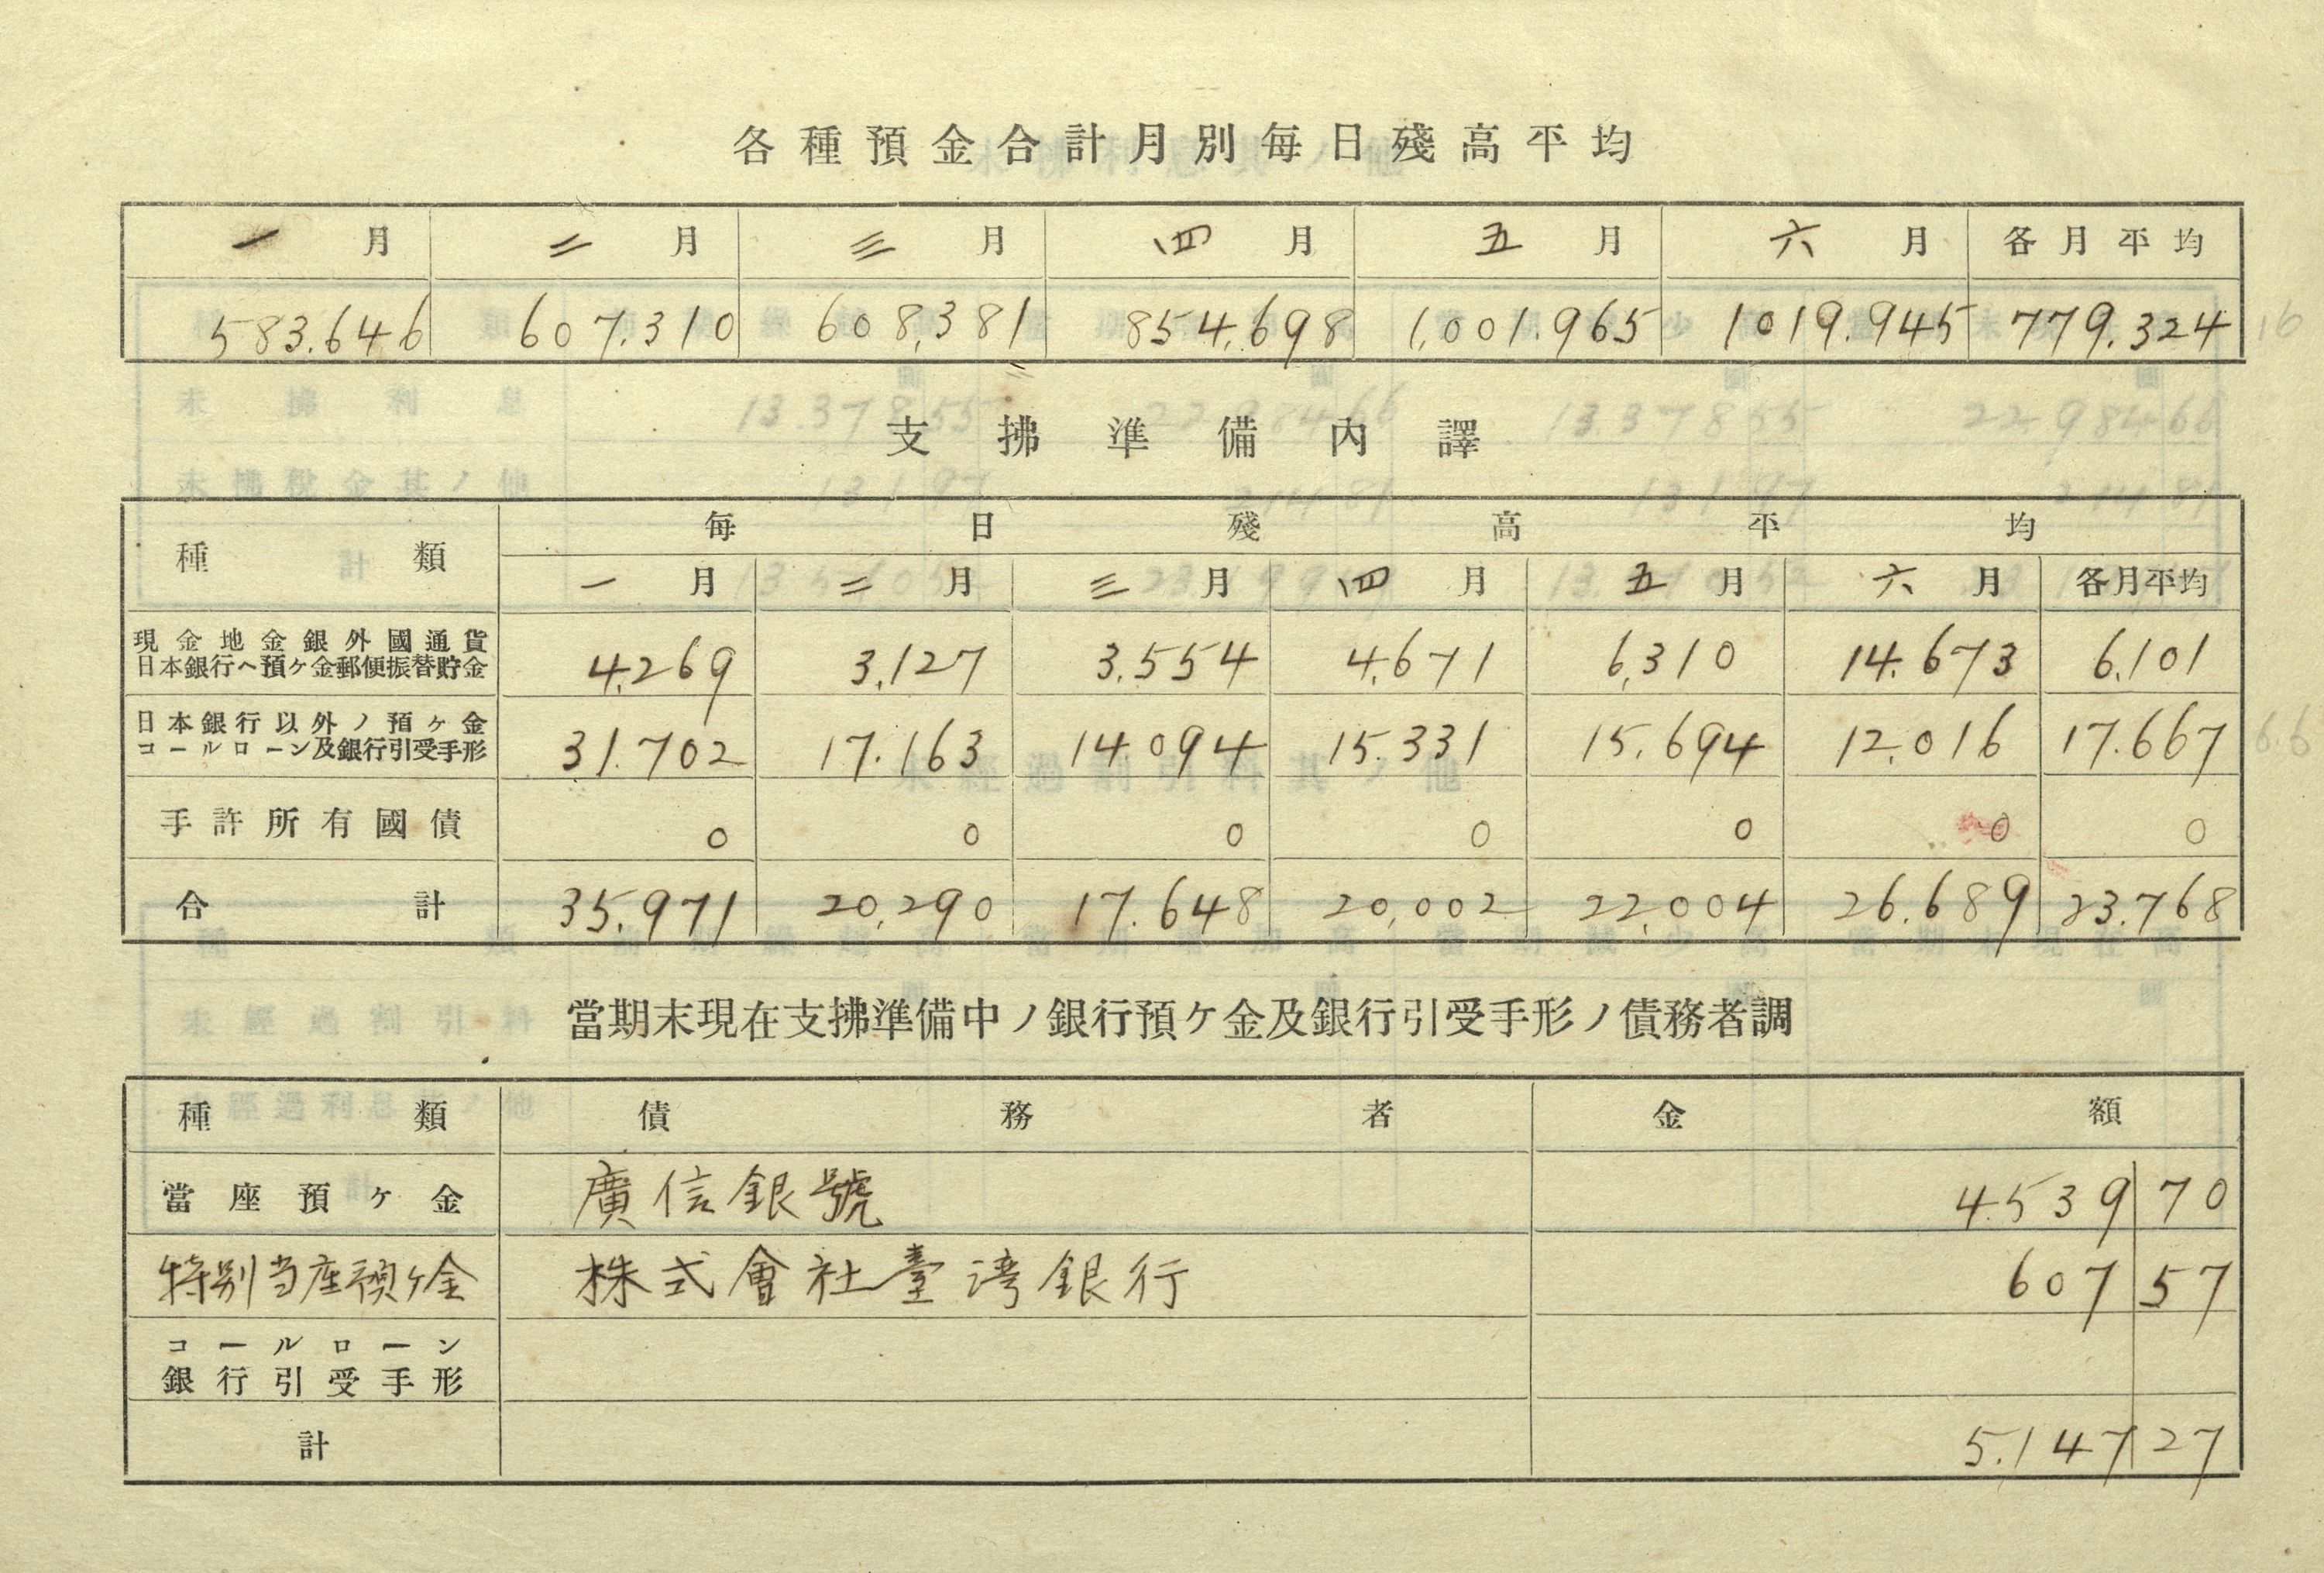 各種預金合計月別每日殘高平均
一月 二月 三月 四月 五月 六月 各月平均
583.646 607.310 608,381 854.698 1,001.965 1019.945 779.324 16
支拂準備內譯
種類 每日殘高平均
一月 二月 三月 四月 五月 六月 各月平均
現金地金銀外國通貨
日本銀行ヘ預ケ金郵便振替貯金 4.269 3,127 3.554 4.671 6,310 14.673 6.101
日本銀行以外ノ預ヶ金
コールローン及銀行引受手形 31.702 17.163 14094 15.331 15.694 12.016 17.667 6.6
手許所有國債 0 0 0 0 0 0 0
合計 35.971 20,290 17.648 20,002 22.004 26.689 23.768
當期末現在支拂準備中ノ銀行預ケ金及銀行引受手形ノ債務者調
種類 債務者 金額
當座預ヶ金 廣信銀號 4.539 70
特別当座預ケ金 株式會社臺湾銀行 607 57
コールローン
銀行引受手形
計 5.147 27